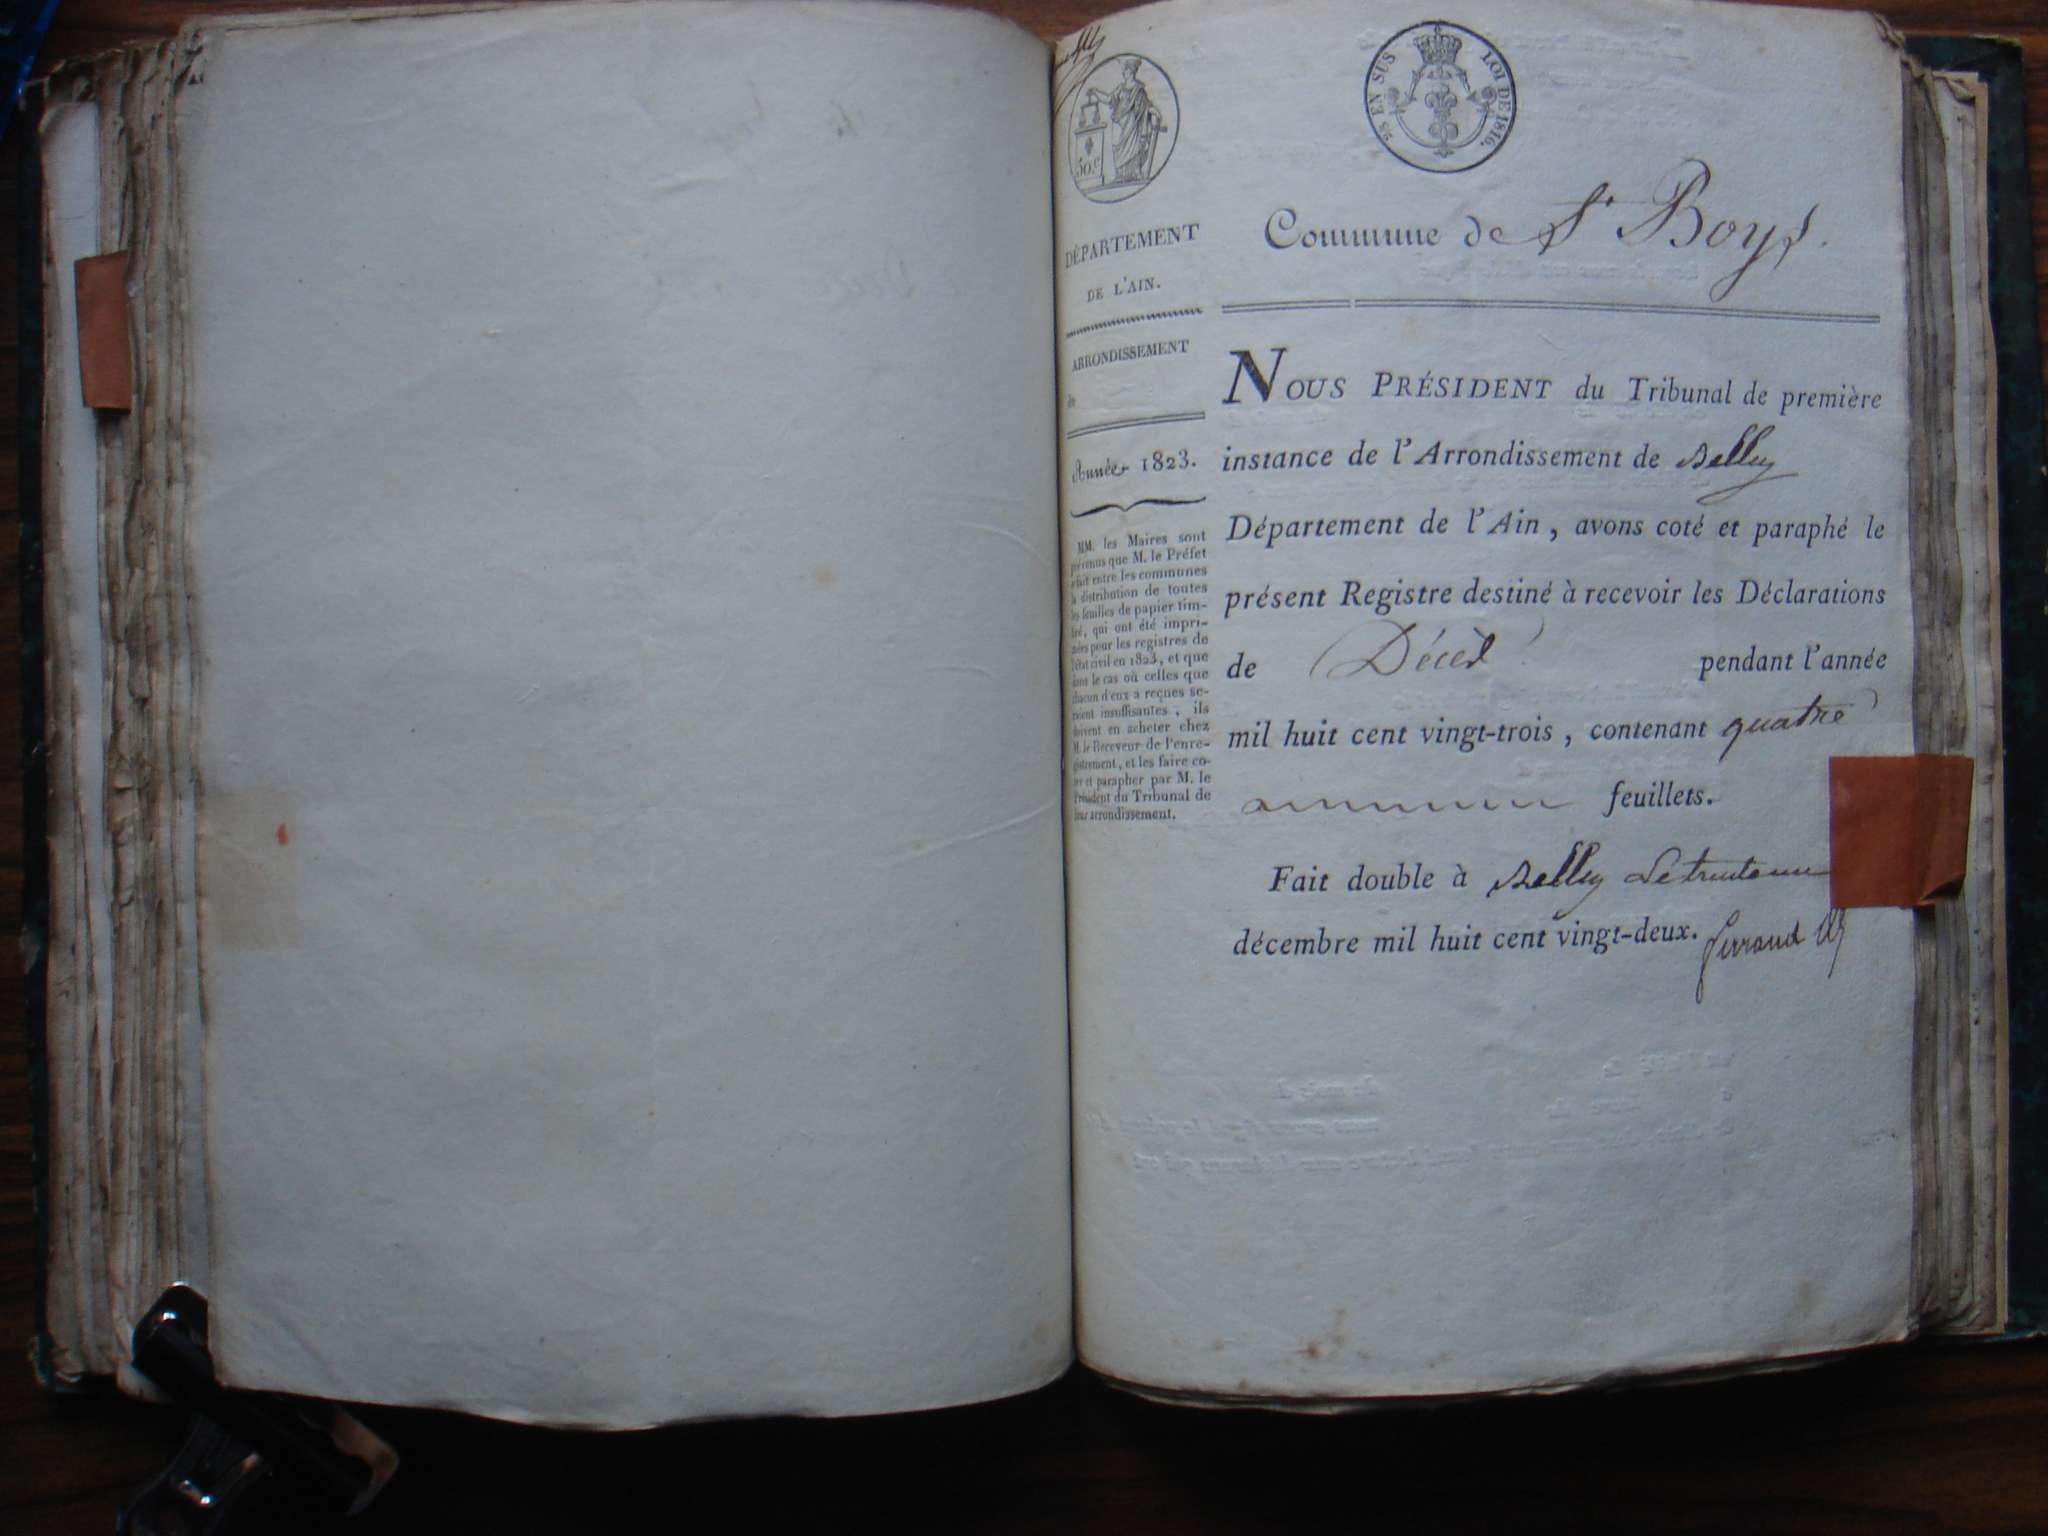 50.c
25 EN SUS LOI DE 1816.
DÉPARTEMENT
DE L'AIN.
ARRONDISSEMENT
de
Année 1823.
MM. les Maires sont
prévenus que M. le Préfet
a fait entre les communes
la distribution de toutes
les feuilles de papier tim-
bré, qui ont été impri-
mées pour les registres de
l'état civil en 1823, et que
dans le cas où celles que
chacun d'eux a reçues se-
roient insuffisantes, ils
doivent en acheter chez
M. le Receveur de l'enre-
gistrement, et les faire co-
ter et parapher par M. le
Président du Tribunal de
leur arrondissement.
Commune de St Boys.
NOUS PRÉSIDENT du Tribunal de première
instance de l'Arrondissement de Belley
Département de l'Ain, avons coté et paraphé le
présent Registre destiné à recevoir les Déclarations
de Décès pendant l'année
mil huit cent vingt-trois, contenant quatre
feuillets.
Fait double à Belley Le trente un
décembre mil huit cent vingt-deux.